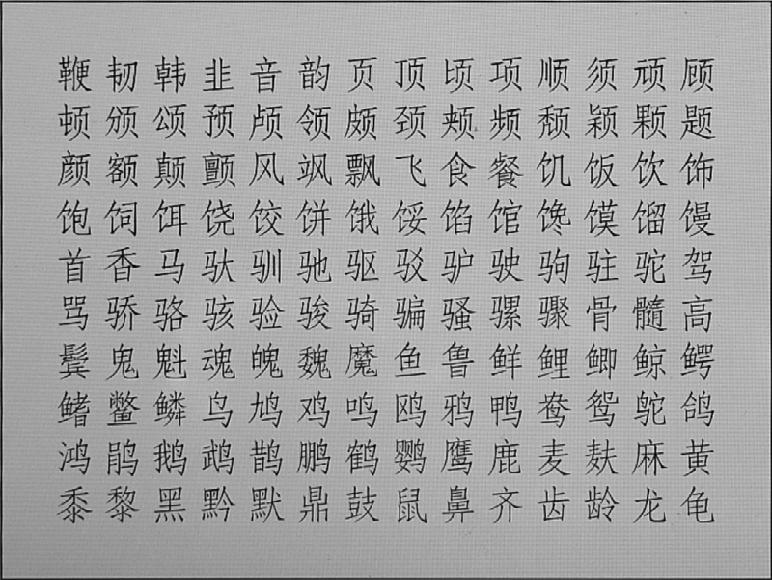 鞭韧韩韭音韵页顶顷项顺须顽顾
顿颁颂预颅领颇颈颊频颓颖颗题
颜额颠颤风飒飘飞食餐饥饭饮饰
饱饲饵饶饺饼饿馁馅馆馋馍馏馒
首香马驮驯驰驱驳驴驶驹驻驼驾
骂骄骆骇验骏骑骗骚骡骤骨髓高
鬓鬼魁魂魄魏魔鱼鲁鲜鲤鲫鲸鳄
鳍鳖鳞鸟鸠鸡鸣鸥鸦鸭鸯鸳鸵鸽
鸿鹃鹅鹉鹊鹏鹤鹦鹰鹿麦麸麻黄
黍黎黑黔默鼎鼓鼠鼻齐齿龄龙龟